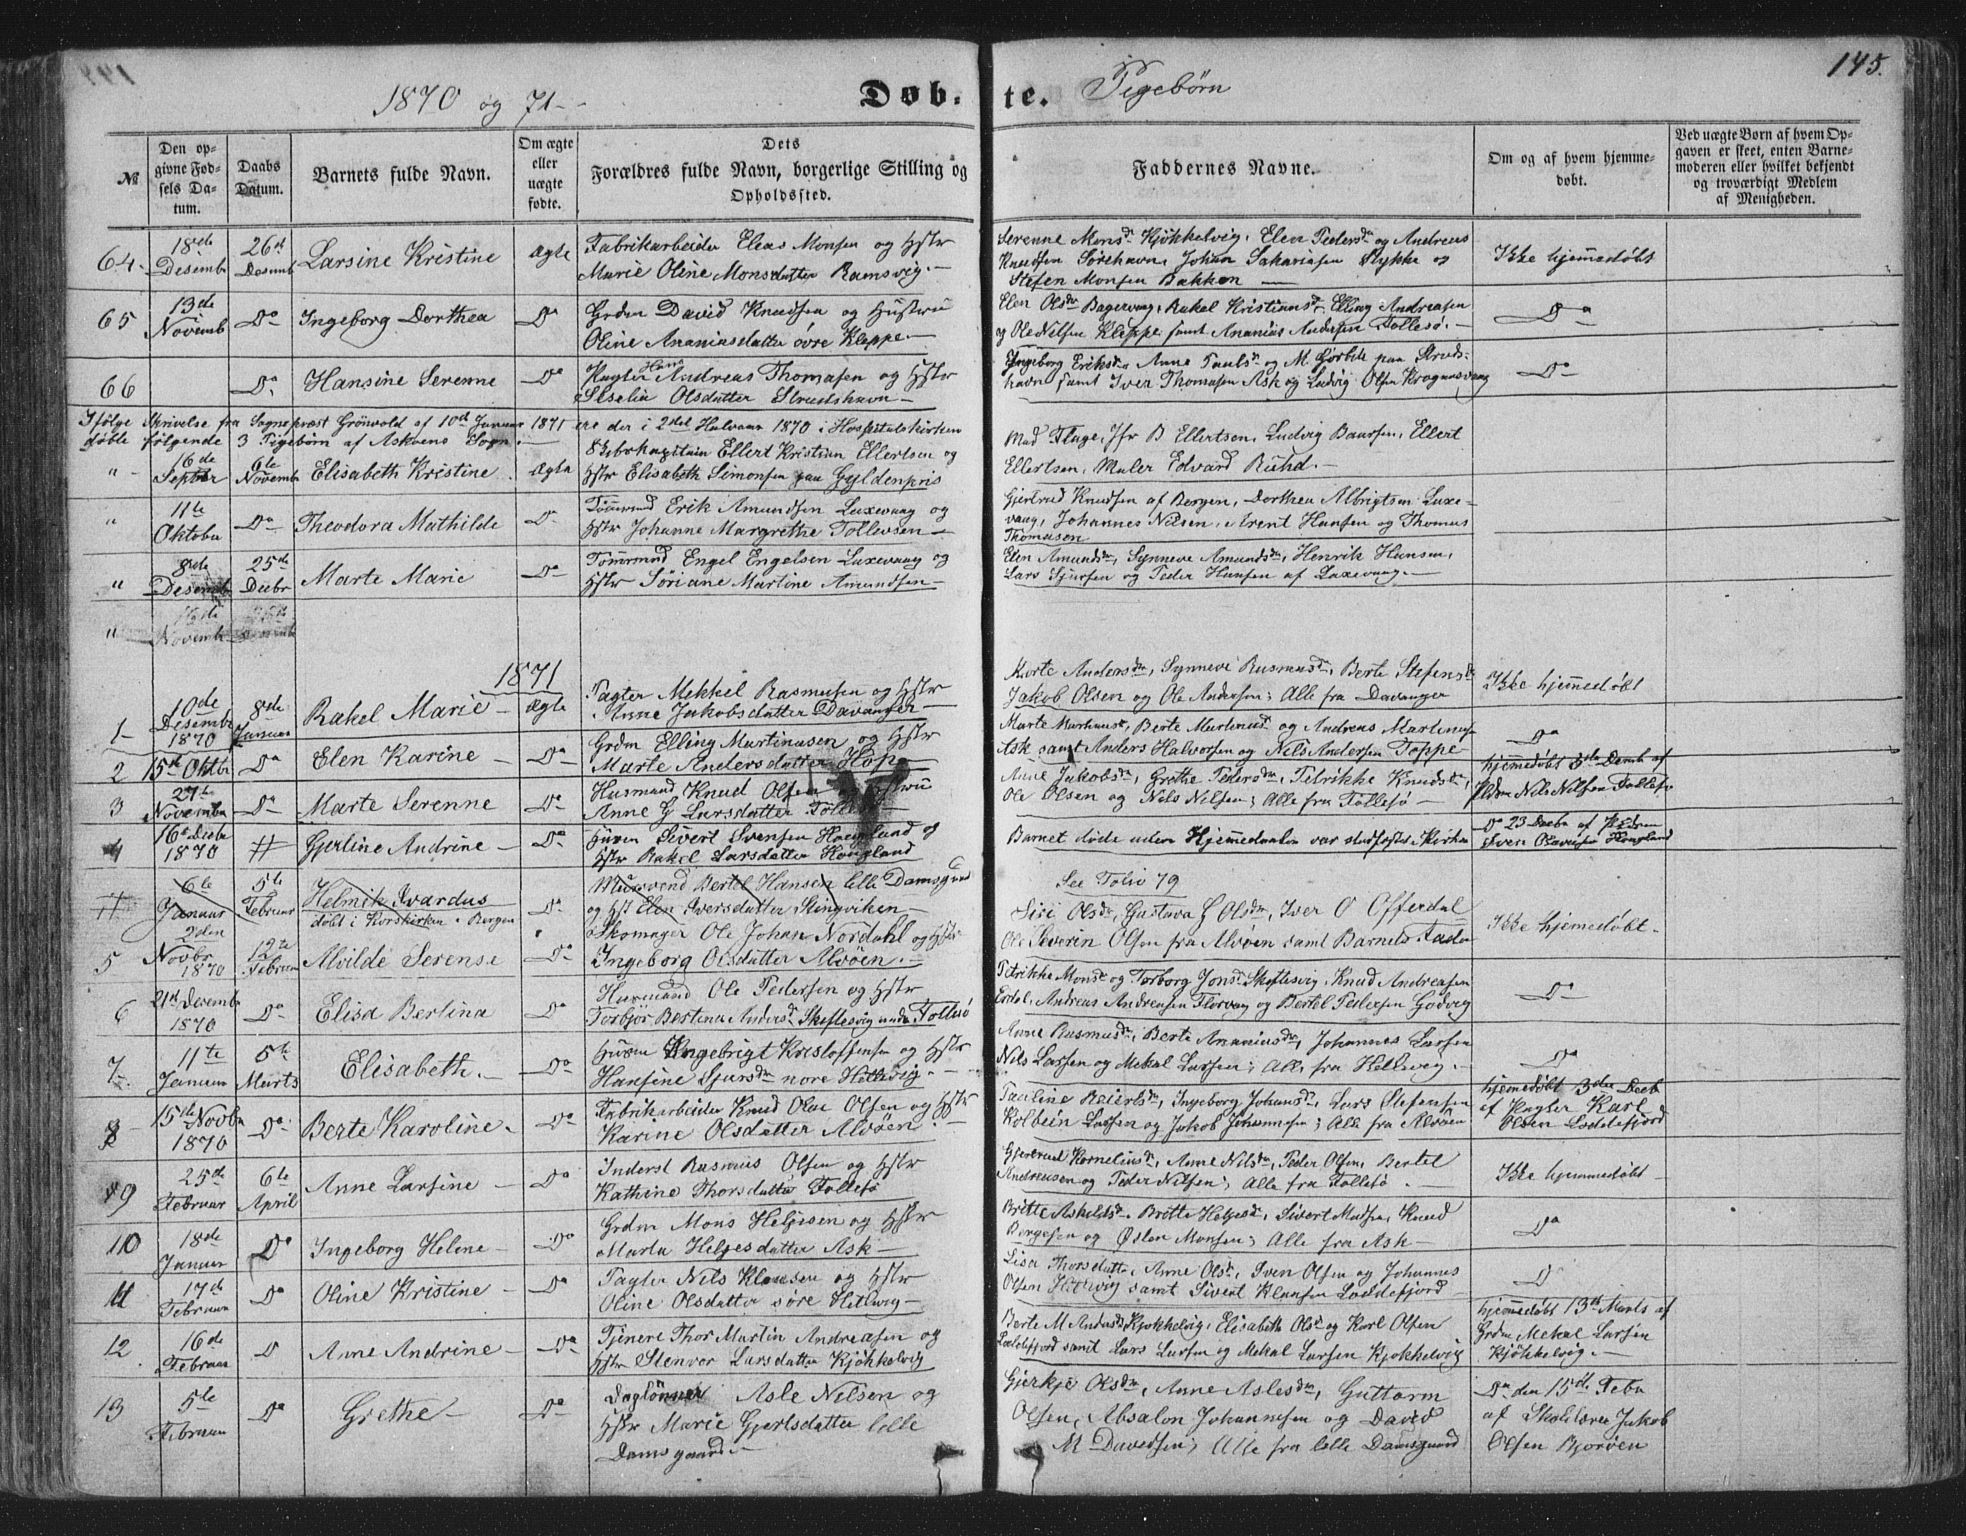 145.
1870 og 71
Døb- te. Pigebørn
№
Den opgivne Fødsels Datum.
Daabs Datum.
Barnets fulde Navn.
Om ægte eller uægte fødte.
Dets Forældres fulde Navn, borgerlige Stilling og Opholdssted.
Faddernes Navne.
Om og af hvem hjemmedøbt.
Ved uægte Børn af hvem Opgaven er skeet, enten Barnemoderen eller hvilket bekjendt og troværdigt Medlem af Menigheden.
64. 18de Desemb 26de Desemb Larsine Kristine ægte Fabrikarbeider Elias Monsen og Hstr
Marie Oline Monsdatter Ramsvig.
Serenne Monsd. Kjøkkelvig, Elen Pedersd og Andreas
Knudsen Sørehavn, Johan Sakariasen Slykke og
Stefen Monsen Bakken
Ikke hjemedøbt
65 13de Novemb Do Ingeborg Dorthea Do Grdm David Knudsen og Hustru
Oline Ananiasdatter øvre Kleppe
Elen Olsdr , Rakel Kristiansd, Elling Andreasen
og Ole Nilsen Kleppe samt Ananias Andersen Follesø.
Do
66 Do Hansine Serenne Do Pagter Hans Andreas Thomasen og Hstr
Seselia Olsdatter Strudshavn
Ingeborg Eriksd, Anne Paulsd og M. paa Struds-
havn samt Iver Thomasen Ask og Ludvig Olsen
Do
Ifølge Skrivelse fra Sogneprest Grönvold af 10de Januar 1871 ere der i 2det Halvaar 1870 i Hospitalskirken
døbte følgende 3 Pigebørn af Askøens Sogn.
" 16de Septbr 6te Novemb Elisabeth Kristine ægte Skibskaptain Ellert Kristian Ellertsen og
Hstr Elisabeth Simonsen paa Gyldenpris
Mad Fluge, Jfr B Ellertsen, Ludvig Baarsen, Ellert
Ellertsen, Maler Edvard
" 11te Oktober Do Theodora Mathilde Do Tømrmd Erik Amundsen Laxevaag og
Hstr Johanne Margrethe Tollevsen
Gjertrud Knudsen af Bergen, Dorthea Albrigtsen Laxe-
vaag, Johannes Nilsen, Arent Hansen og Thomas
Thomasen
" 8de Desemb 25de Decbr Marte Marie Do Tømrmd Engel Engelsen Laxevaag og
Hstr Søriane Martine Amundsen
Elen Amundsdr, Synneve Amundsdr, Henrik Hansen,
Lars Sjursen og Peder Hansen af Laxevaag.
" 16de Novemb
1871
1 10de Desemb 1870 8de Januar Rakel Marie ægte Pagter Mekkel Rasmusen og Hstr
Anne Jakobsdatter Davanger
Marte Andersdr, Synneve Rasmusdr, Berte Stefensdr
Jakob Olsen og Ole Andersen; Alle fra Davanger
Ikke hjemedøbt
2 15de Oktbr Do Elen Karine Do Grdm Elling Martinusen og Hstr
Marte Andersdatter Hope
Marte , Berte Martinusd og Andreas Martinus
Ask samt Anders Halvorsen og Nils Andersen Toppe
Do
3 27de Novemb Do Marte Serenne Do Husmand Knud Olsen og Hustru
Anne G Larsdatter Follesø
Anne Jakobsdr, Grethe Pedersdr, Petrikke Knudsdr,
Ole Olsen og Nils Nilsen; Alle fra Follesø
hjemedøbt 3de Decemb af
Nils Nilsen Follesø
4 16de Decbr 1870 # Gjerline Andrine Do Sivert Svensen Hougland og
Hstr Rakel Larsdatter Hougland
Barnet døde uden Hjemedaaben var stadfæstet i Kirken
Do 23 Decbr af
Sven Hougland
# 6te Januar 5te Februar Helmik Ivardus
døbt i Korskirken i Bergen Do Murvend Bertel Hansen lille Damsgaard
og Hst Elen Iversdatter Stingviken
See Folio 79
5 2den Novbr 1870 12te Februar Alvilde Serense Do Skomager Ole Johan Nordahl og Hstr
Ingeborg Olsdatter Alvøen.
Siri Olsdr, Gustava G Olsdr, Iver O Offerdal
Ole Severin Olsen fra Alvøen samt Barnets Fader
Ikke hjemedøbt
6 21de Decemb 1870 Do Elisa Berlina Do Husmand Ole Pedersen og Hstr
Torbjør Bertina Andersd. Skiftesvig under Follesø
Petrikke Monsd og Torborg Jonsd Skiftesvig, Knud Andreasen
Erdal, Andreas Andreasen Florvaag og Bertel Pedersen Godvig
Do
7 11te Januar 5te Marts Elisabeth. Do Ingebrigt Kristoffensen og Hstr
Hansine Sjursdr nore Hetlevig.
Anne Rasmusdr, Berte Ananiasdr, Johannes Larsen
Nils Larsen og Mekal Larsen; Alle fra Hetlevig.
Do
8 15de Novbr 1870 Do Berte Karoline. Do Fabrikarbeider Knud Olai Olsen og Hstr
Karine Olsdatter Alvøen
Pauline Reiersdr, Ingeborg Johansdr, Lars Stefensen
Kolbein Larsen og Jakob Johannesen; Alle fra Alvøen
hjemedøbt 3de Decb
af Pagter Karl
Olsen Loddefjord
9 25de Februar 6te April Anne Larsine Do Inderst Rasmus Olsen og Hstr
Kathrine Thorsdatter Follesø
Gjertrud Kornelius, Anne Nilsdr, Peder Olsen, Bertel
Andreasen og Peder Nilsen; Alle fra Follesø.
Ikke hjemmedøbt
10 18de Januar Do Ingeborg Helene Do Grdm Mons Helgesen og Hstr
Marta Helgesdatter Ask
Britte Askildsdr, Britte Helgesdr, Sivert Madsen, Knud
Børgesen og Østen Monsen; Alle fra Ask
Do
11 17de Februar Do Oline Kristine Do Pagter Nils Klausen og Hstr
Oline Olsdatter søre Hetlevig
Lisa Thorsdatter, Anne Olsd, Sven Olsen og Johannes
Olsen Hetlevig samt Sivert Klausen Loddefjord
D
12 16de Februar D Anne Andrine Do Tjenere Thor Martin Andreasen og
Hstr Stenvor Larsdatter Kjøkkelvig
Berte M Andersd Kjøkkelvig, Elisabeth Olsd og Karl Olsen
Loddefjord samt Lars Larsen og Mekal Larsen Kjøkkelvig
hjemedøbt 13de Marts af
Grdm Mekal Larsen
Kjøkkelvig.
13 5te Februar Do Grethe Do Daglønner Asle Nilsen og
Hstr Marie Gjertsdatter lille
Damsgaard
Gjerkje Olsdr, Anne Aslesdr, Guttorm
Olsen, Absalon Johannesen og David
M Davidsen; Alle fra lille Damsgaard
Do den 15de Febr
af Skolelærer Jakob
Olsen Bjorøen